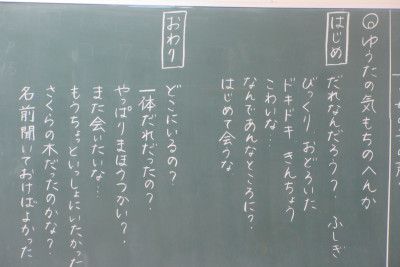 めゆうたの気もちのへんか
はじめ
だれなんだろう? ふしぎ
びっくり おどろいた
ドキドキ きんちょう
こわいな…
なんであんなところに?
はじめて会うな。
おわり
どこにいるの?
一体だれだったの?
やっぱりまほうつかい?
また会いたいな…
もうちょっといっしょにいたかった
さくらの木だったのかな?
名前聞いておけばよかった